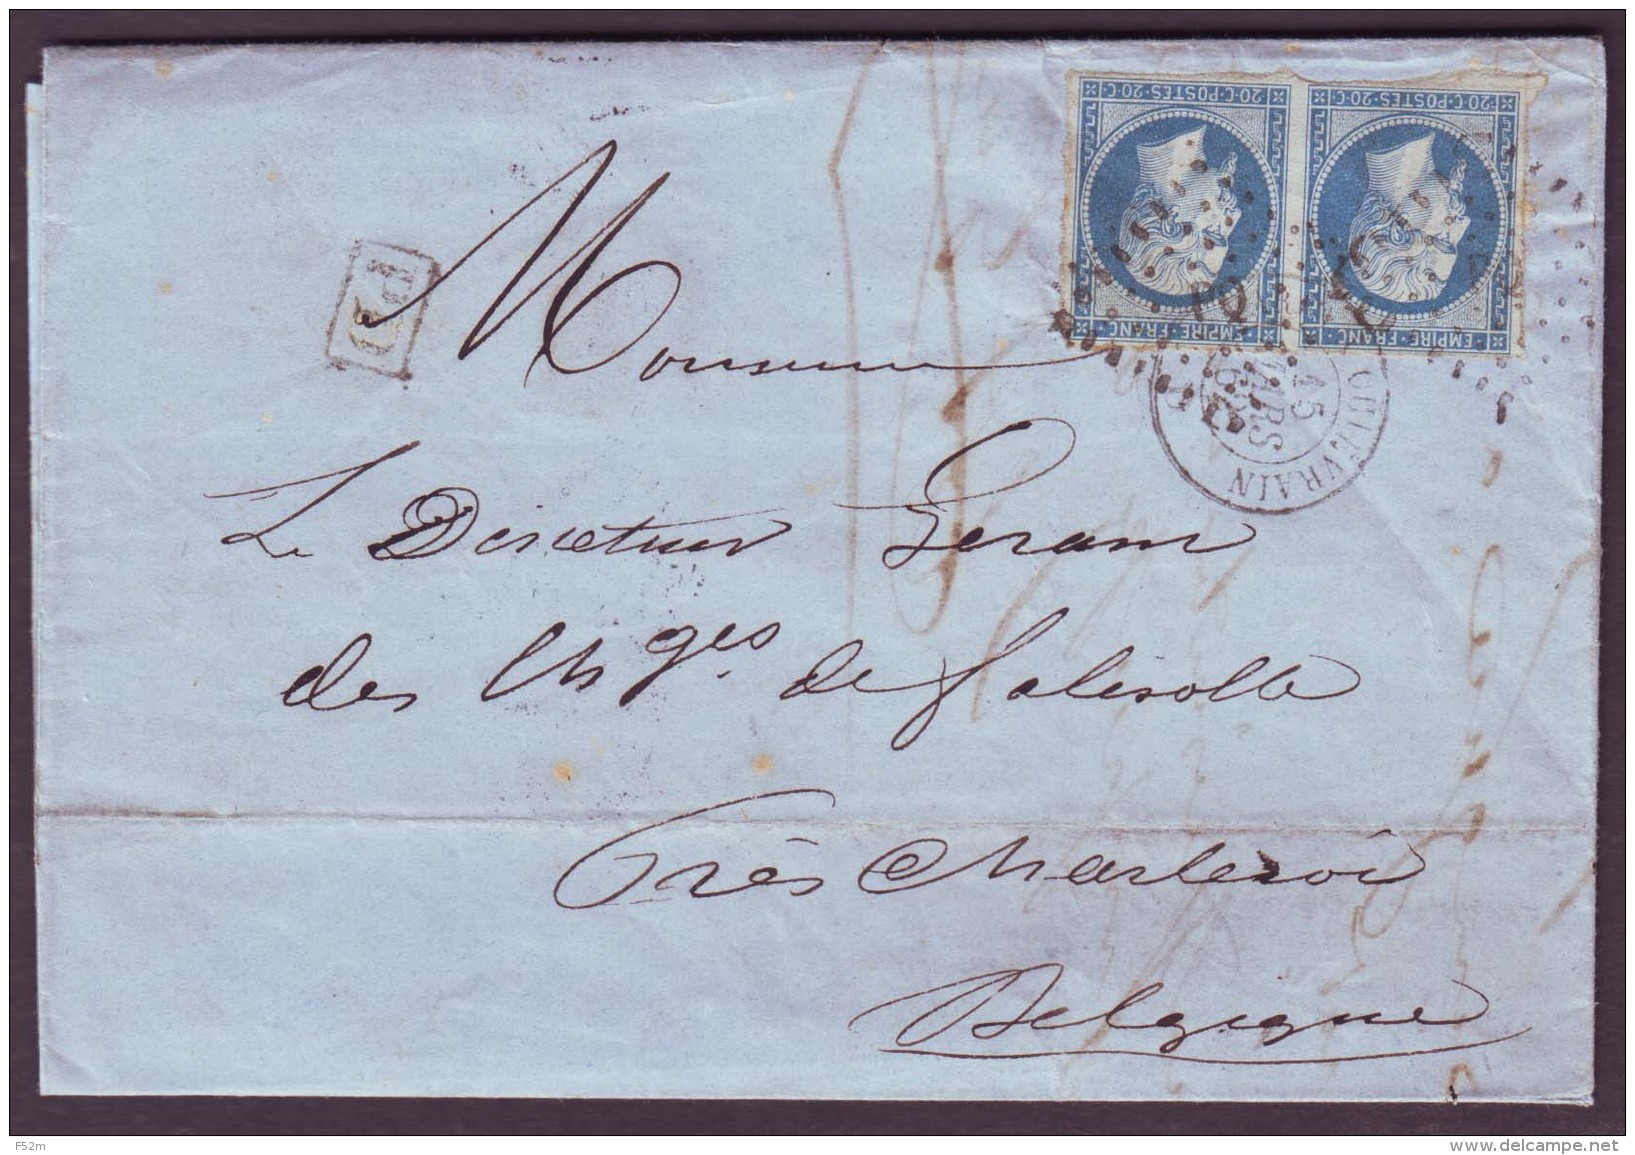 20·C·POSTES·20·C
20·C·POSTES·20·C
EMPIRE·FRANC
EMPIRE·FRANC
P.D.
QUIEVRAIN
15
MARS
62
Monsieur
Le Directeur Gérant
des Chges. de Falisolle
Près Charleroi
Belgique
F52m
www.delcampe.net